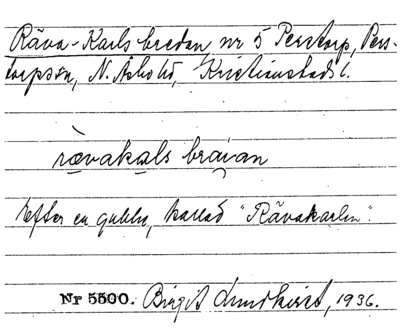 Räva-Karls bredan nr 5 Perstorp, Pers-
torps sn, N. Åsbo hd, Kristianstads l.
rævakals braian
Efter en gubbe, kallad "Rävakarlen".
Nr 5500. Birgit Lundkvist, 1936.